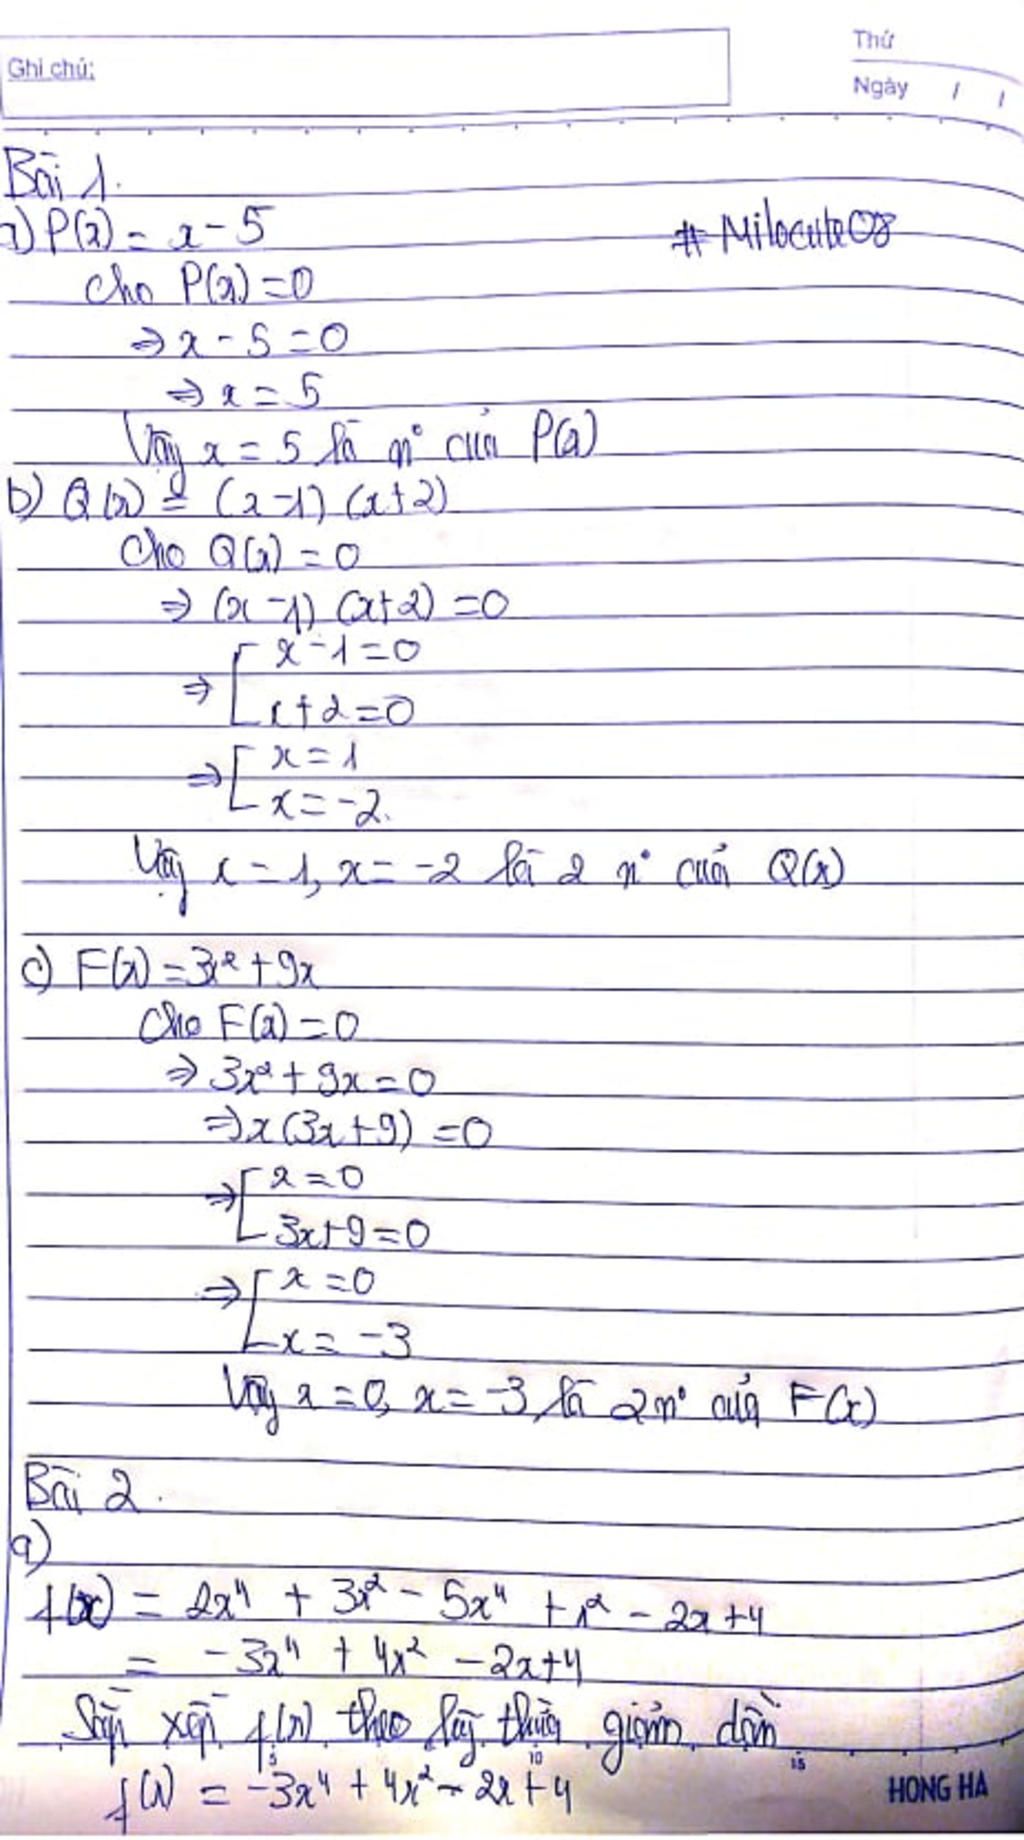 Ghi chú:
Thứ
Ngày / /
Bài 1.
a) P(x) = x - 5
#Milocute08
cho P(x) = 0
⇒ x - 5 = 0
⇒ x = 5
Vậy x = 5 là n° của P(x)
b) Q(x) = (x-1) (x+2)
Cho Q(x) = 0
⇒ (x-1) (x+2) = 0
⇒ [ x-1=0
x+2=0
⇒ [ x = 1
x = -2.
Vậy x = 1, x = -2 là 2 n° của Q(x)
c) F(x) = 3x² + 9x
Cho F(x) = 0
⇒ 3x² + 9x = 0
⇒ x(3x+9) = 0
⇒ [ x = 0
3x+9=0
⇒ [ x = 0
x = -3
Vậy x = 0, x = -3 là 2 n° của F(x)
Bài 2.
a)
f(x) = 2x⁴ + 3x² - 5x⁴ + x² - 2x+4
= -3x⁴ + 4x² - 2x+4
Sắp xếp f(x) theo lũy thừa giảm dần
5 10 15
f(x) = -3x⁴ + 4x² - 2x + 4
HONG HA